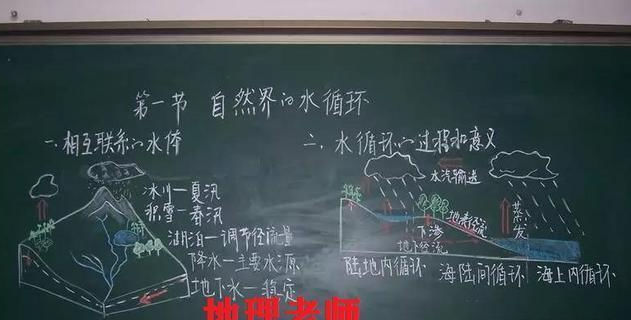 第一节 自然界的水循环
一、相互联系的水体
冰川—夏汛
积雪—春汛
湖泊—调节径流量
降水—主要水源
地下水—稳定
二、水循环的过程和意义
水汽输送
地表径流
下渗
地下径流
蒸发
陆地内循环 海陆间循环 海上内循环
地理老师